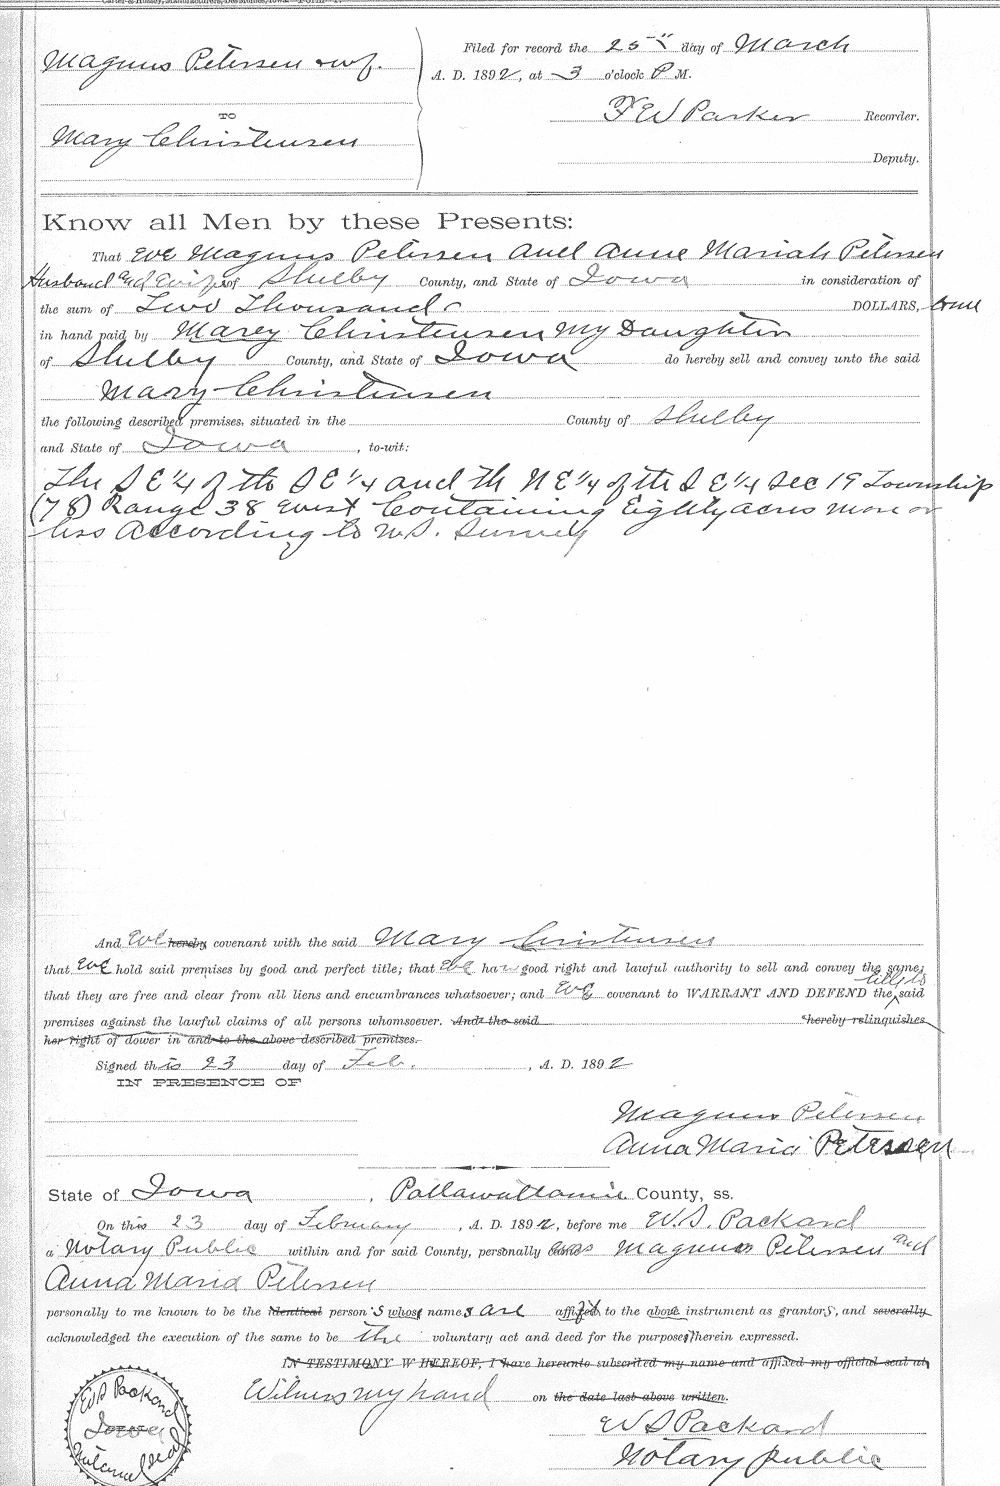 Magnus Petersen & wf.
TO
Mary Christensen
Filed for record the 25th day of March
A. D. 1892, at 3 o'clock P M.
F W Parker Recorder.
Deputy.
Know all Men by these Presents:
That We Magnus Petersen and Anne Mariah Petersen
Husband and Wife of Shelby County, and State of Iowa in consideration of
the sum of Two Thousand DOLLARS,
in hand paid by Marey Christensen My Daughter
of Shelby County, and State of Iowa do hereby sell and convey unto the said
Mary Christensen
the following described premises, situated in the County of Shelby
and State of Iowa, to-wit:
The S E 1/4 of the S E 1/4 and the N E 1/4 of the S E 1/4 Sec 19 Township
(78) Range 38 West Containing Eighty acres more or
less According to U.S. Survey
And We hereby covenant with the said Mary Christensen
that We hold said premises by good and perfect title; that We have good right and lawful authority to sell and convey the same;
that they are free and clear from all liens and encumbrances whatsoever; and We covenant to WARRANT AND DEFEND the title to said
premises against the lawful claims of all persons whomsoever. And the said hereby relinquishes
her right of dower in and to the above described premises.
Signed this 23 day of Feb. , A. D. 1892
IN PRESENCE OF
Magnus Petersen
Anna Maria Petersen
State of Iowa , Pottawattamie County, ss.
On this 23 day of February , A. D. 1892, before me W.S. Packard
a Notary Public within and for said County, personally Magnus Petersen and
Anna Maria Petersen
personally to me known to be the identical person's whose names are affixed to the above instrument as grantors, and severally
acknowledged the execution of the same to be the voluntary act and deed for the purposes therein expressed.
IN TESTIMONY WHEREOF, I have hereunto subscribed my name and affixed my official seal at
Witness my hand on the date last above written.
W S Packard
Notary public
W S Packard
Iowa
Notarial Seal